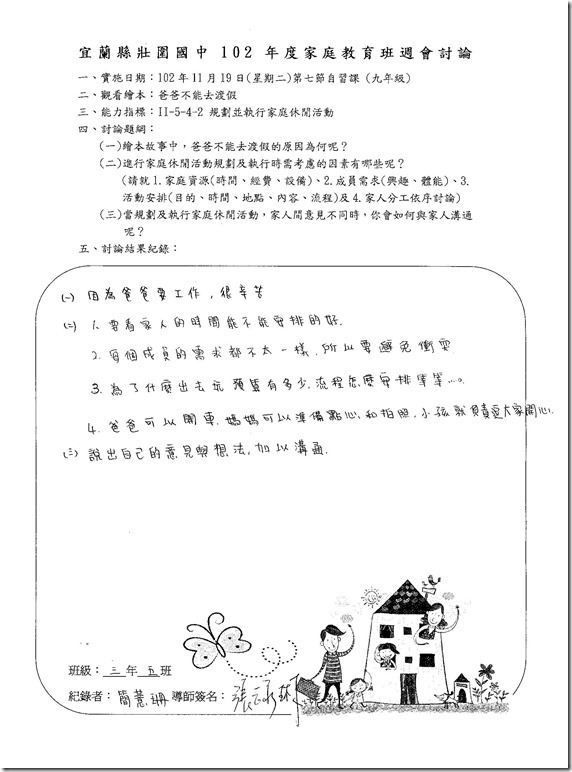 宜蘭縣壯圍國中 102 年度家庭教育班週會討論
一、實施日期：102年11月19日(星期二)第七節自習課 (九年級)
二、觀看繪本：爸爸不能去渡假
三、能力指標：II-5-4-2 規劃並執行家庭休閒活動
四、討論題綱：
(一)繪本故事中，爸爸不能去渡假的原因為何呢？
(二)進行家庭休閒活動規劃及執行時需考慮的因素有哪些呢？
(請就1.家庭資源(時間、經費、設備)、2.成員需求(興趣、體能)、3.
活動安排(目的、時間、地點、內容、流程)及4.家人分工依序討論)
(三)當規劃及執行家庭休閒活動，家人間意見不同時，你會如何與家人溝通
呢？
五、討論結果紀錄：
(一) 因為爸爸要工作，很辛苦
(二) 1. 要看家人的時間能不能安排的好.
2. 每個成員的需求都不太一樣，所以要避免衝突
3. 為了什麼出去玩，預算有多少，流程怎麼安排等等...。
4. 爸爸可以開車，媽媽可以準備點心和拍照，小孩就負責逗大家開心.
(三) 說出自己的意見與想法，加以溝通.
班級：三年五班
紀錄者：簡薏珊 導師簽名：張